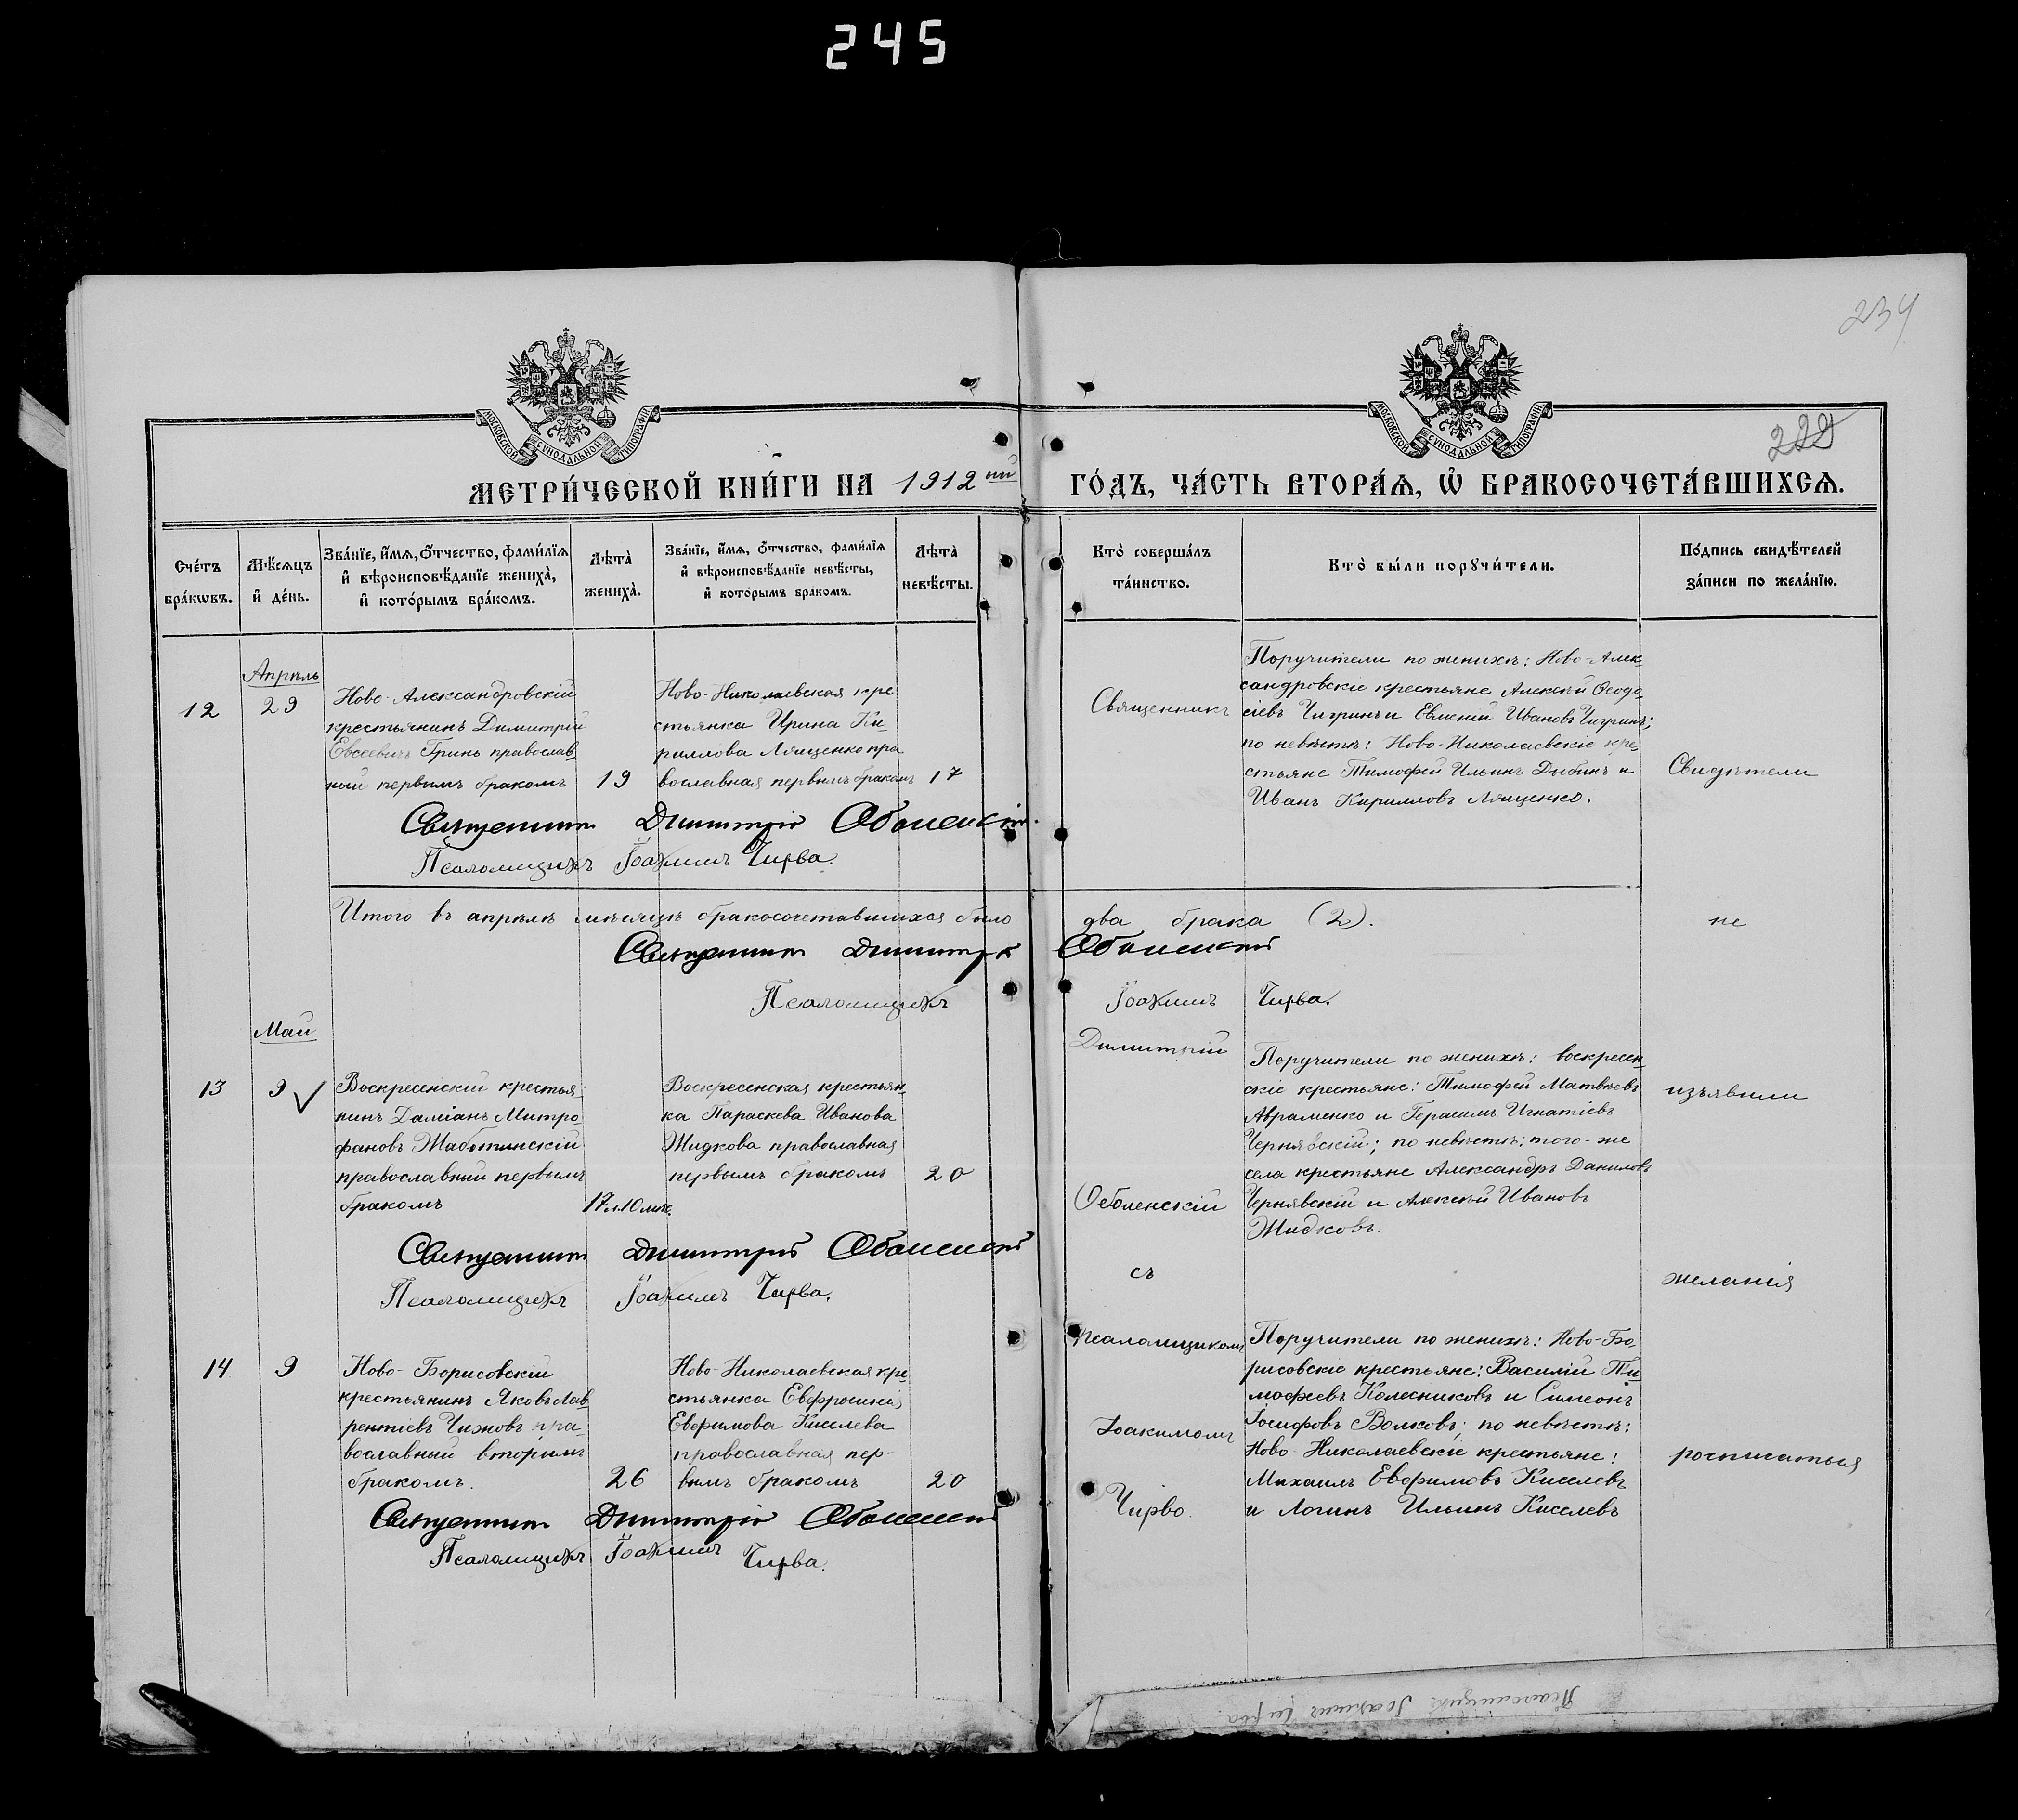 245
234
229
МОСКОВСКОЙ СѴНОДАЛЬНОЙ ТИПОГРАФІИ
МОСКОВСКОЙ СѴНОДАЛЬНОЙ ТИПОГРАФІИ
МЕТРИ́ЧЕСКОЙ КНИ́ГИ НА 1912ый ГО́ДЪ, ЧА́СТЬ ВТОРА́Ѧ, Ѡ҆ БРАКОСОЧЕТА́ВШИХСѦ.
Сче́тъ бра́кѡвъ.
Мѣ́сѧцъ и҆ де́нь.
Зва́нїе, и҆́мѧ, ѻ҆́тчество, фами́лїѧ и҆ вѣроисповѣ́данїе жениха̀, и҆ кото́рымъ бра́комъ.
Лѣта̀ жениха̀.
Зва́нїе, и҆́мѧ, ѻ҆́тчество, фами́лїѧ и҆ вѣроисповѣ́данїе невѣ́сты, и҆ кото́рымъ бра́комъ.
Лѣта̀ невѣ́сты.
Кто̀ соверша́лъ та́инство.
Кто̀ бы́ли порꙋчи́тели.
По́дпись свидѣ́телей за́писи по жела́нїю.
Апрѣль
12
29
Ново-Александровскій
крестьянинъ Димитрій
Евсеевичъ Гринь православ-
ный первымъ бракомъ
19
Ново-Николаевская кре
стьянка Ирина Ки-
риллова Лященко пра
вославная первымъ бракомъ
17
Священникъ
Поручители по женихѣ: Ново-Алек-
сандровскіе крестьяне Алексѣй Ѳеодо-
сіевъ Чигринъ и Евменій Ивановъ Чигринъ;
по невѣстѣ: Ново-Николаевскіе кре-
стьяне Тимофей Ильинъ Дыбинъ и
Иванъ Кирилловъ Лященко.
Свидѣтели
Священникъ Димитрій Оболенскій.
Псаломщикъ Іоакимъ Чирва.
Итого въ апрѣлѣ мѣсяцѣ бракосочетавшихся было два брака (2).
не
Священникъ Димитрій Оболенскій
Псаломщикъ Іоакимъ Чирва.
Май
Димитрій
13
9 ✓
Воскресенскій крестья-
нинъ Даміанъ Митро-
фановъ Жаботинскій
православный первымъ
бракомъ
17 л. 10 мѣс.
Воскресенская крестьян-
ка Параскева Иванова
Жидкова православная
первымъ бракомъ
20
Оболенскій
Поручители по женихѣ: воскресен-
скіе крестьяне: Тимофей Матвѣевъ
Авраменко и Герасимъ Игнатіевъ
Чернявскій; по невѣстѣ: того-же
села крестьяне Александръ Даниловъ
Чернявскій и Алексѣй Ивановъ
Жидковъ.
изъявили
Священникъ Димитрій Оболенскій
Псаломщикъ Іоакимъ Чирва.
съ
желанія
псаломщикомъ
14
9
Ново-Борисовскій
крестьянинъ Яковъ Лав-
рентіевъ Чижовъ пра-
вославный вторымъ
бракомъ.
26
Ново-Николаевская кре-
стьянка Евфросинія
Евфимова Киселева
православная пер-
вымъ бракомъ
20
Іоакимомъ
Чирво.
Поручители по женихѣ: Ново-Бо-
рисовскіе крестьяне: Василій Ти-
мофеевъ Колесниковъ и Симеонъ
Іосифовъ Волковъ; по невѣстѣ:
Ново-Николаевскіе крестьяне:
Михаилъ Евфимовъ Киселевъ
и Логинъ Ильинъ Киселевъ
росписаться
Священникъ Димитрій Оболенскій
Псаломщикъ Іоакимъ Чирва.
Псаломщикъ Іоакимъ Чирва